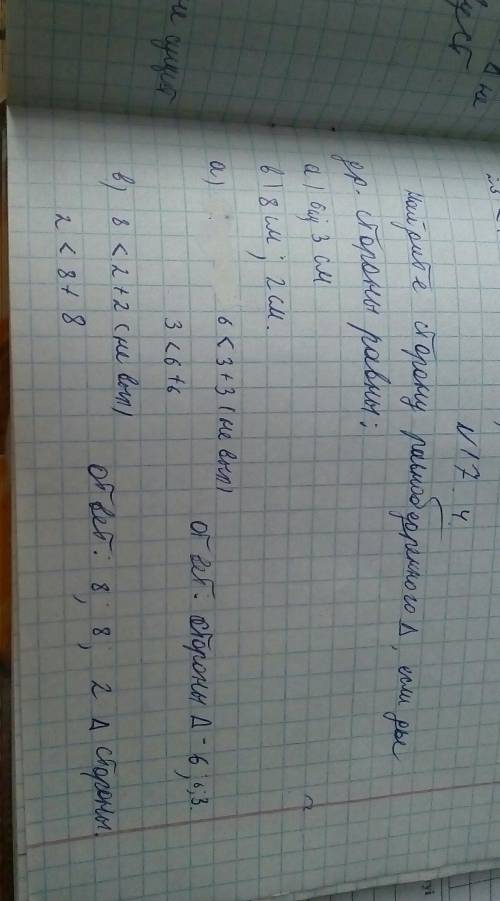 N 17 4.
Найдите сторону равнобедренного Δ, если
др. стороны равны:
а) 6 и 3 см
в) 8 см; 2 см.
а) 6 < 3 + 3 (не вып)
3 < 6 + 6
ответ: стороны Δ - 6; 6; 3.
в) 8 < 2 + 2 (не вып)
2 < 8 + 8
ответ: 8; 8; 2 Δ стороны.